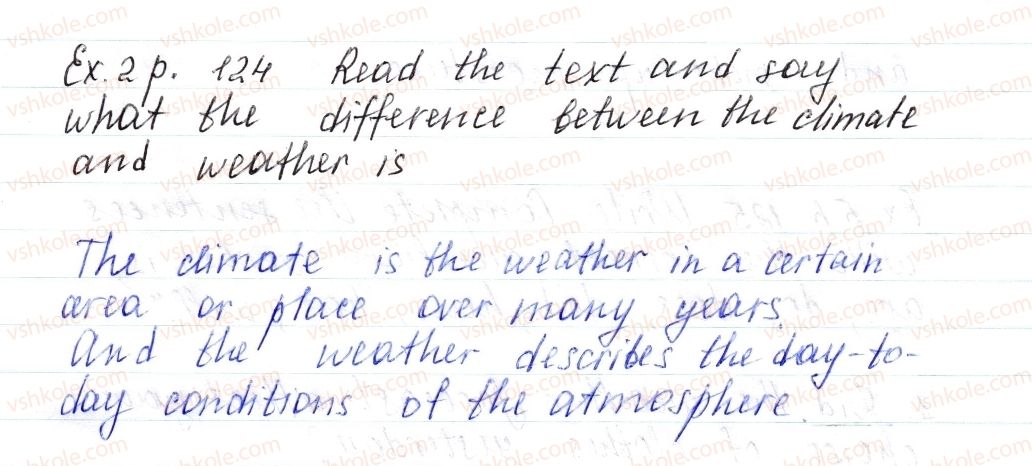 Ex. 2 p. 124 Read the text and say
what the difference between the climate
and weather is
The climate is the weather in a certain
area or place over many years.
And the weather describes the day-to-
day conditions of the atmosphere.